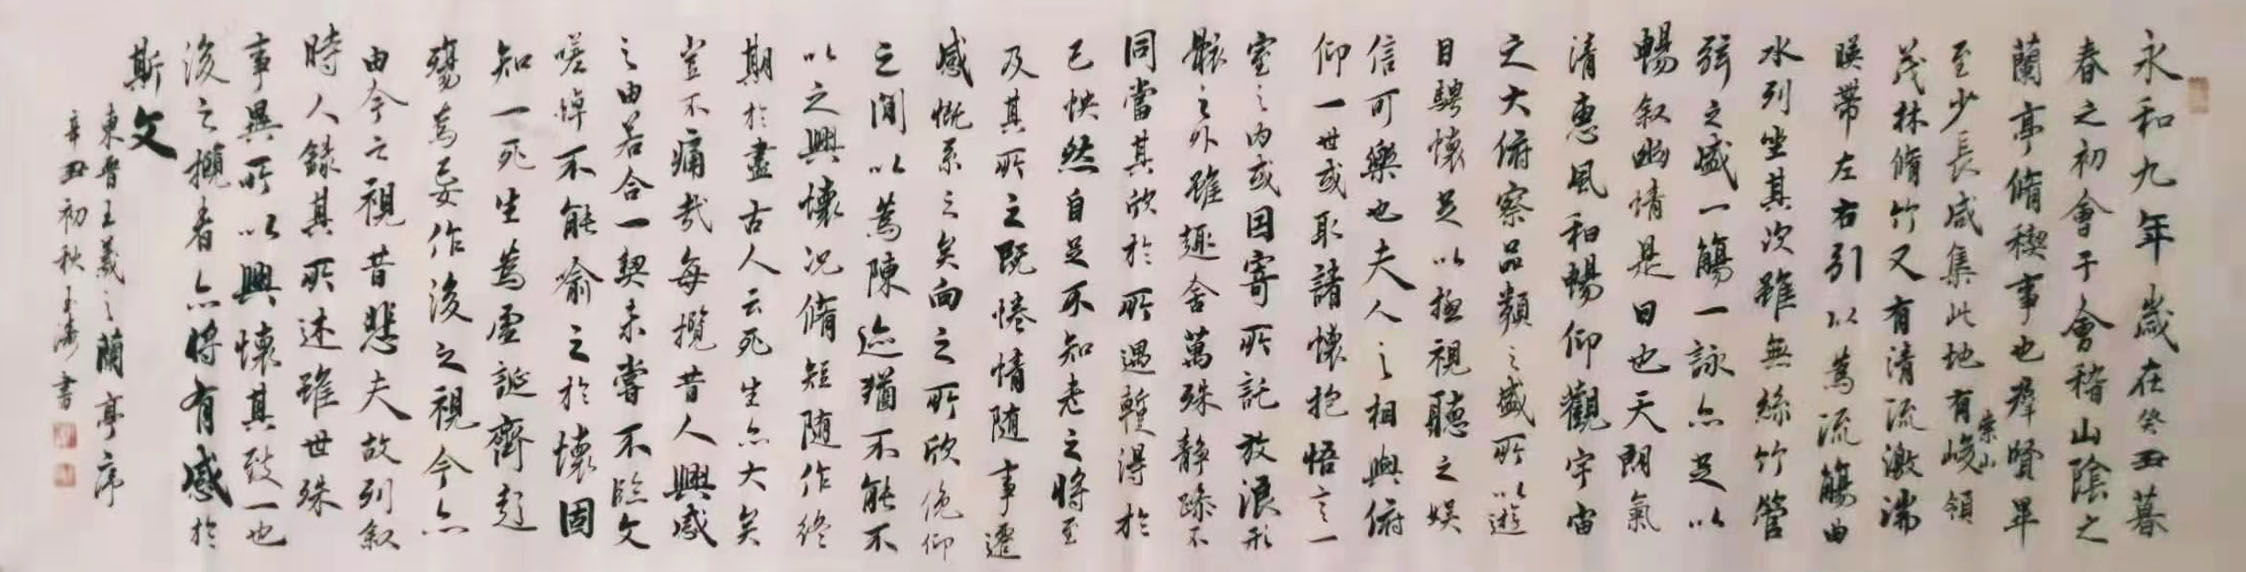 永和九年歲在癸丑暮
春之初會于會稽山陰之
蘭亭脩稧事也羣賢畢
至少長咸集此地有崇山峻領
茂林脩竹又有清流激湍
暎帶左右引以為流觴曲
水列坐其次雖無絲竹管
弦之盛一觴一詠亦足以
暢叙幽情是日也天朗氣
清惠風和暢仰觀宇宙
之大俯察品類之盛所以遊
目騁懷足以極視聽之娛
信可樂也夫人之相與俯
仰一世或取諸懷抱悟言一
室之内或因寄所託放浪形
骸之外雖趣舍萬殊静躁不
同當其欣於所遇暫得於
己怏然自足不知老之將至
及其所之既惓情随事遷
感慨系之矣向之所欣俛仰
之間以為陳迹猶不能不
以之興懷况脩短随作終
期於盡古人云死生亦大矣
豈不痛哉每攬昔人興感
之由若合一契未嘗不臨文
嗟悼不能喻之於懷固
知一死生為虛誕齊彭
殤為妄作後之視今亦
由今之視昔悲夫故列叙
時人錄其所述雖世殊
事異所以興懷其致一也
後之攬者亦將有感於
斯文
東晋王羲之蘭亭序
辛丑初秋王濤書